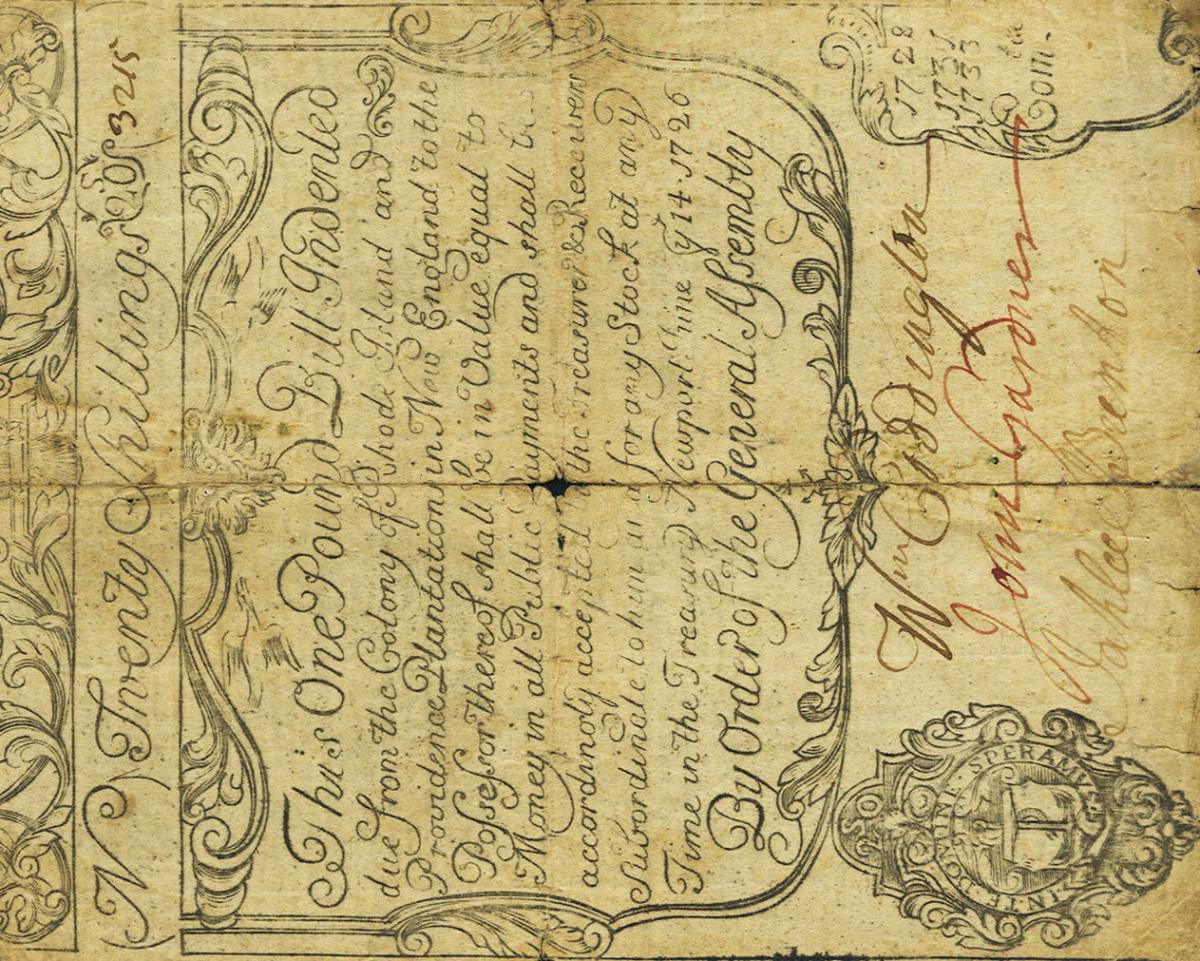 N Twenty Shillings 20s 3215
This One Pound Bill Indented
due from the Colony of Rhode Island and
Providence Plantations in New England to the
Possessor thereof shall be in Value equal to
Money in all Public Payments and shall be
accordingly accepted the Treasurer & Receivers
Subordinate to him for any Stock at any
Time in the Treasury Newport June ye 14 1726
By Order of the General Assembly
1728
1731
1733
Com.
Wm Coddington
John Gardner
Jahleel Brenton
20 S
IN TE DOMINI SPERAMUS